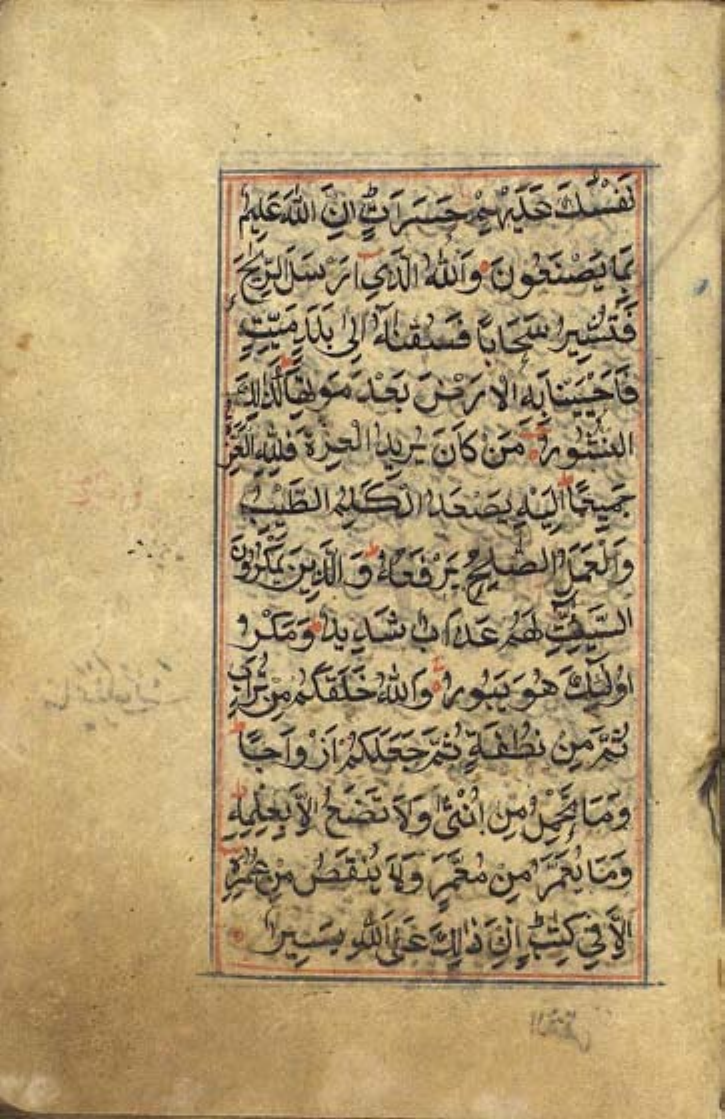 نَفْسُكَ عَلَيْهِمْ حَسَرَاتٍ اِنَّ اللّٰهَ عَلِيمٌ
بِمَا يَصْنَعُونَ وَاللّٰهُ الَّذِي اَرْسَلَ الرِّيٰحَ
فَتُثِيرُ سَحَابًا فَسُقْنٰهُ اِلٰى بَلَدٍ مَيِّتٍ
فَاَحْيَيْنَا بِهِ الْاَرْضَ بَعْدَ مَوْتِهَا كَذٰلِكَ
النُّشُورُ مَنْ كَانَ يُرِيدُ الْعِزَّةَ فَلِلّٰهِ الْعِزَّةُ
جَمِيعًا اِلَيْهِ يَصْعَدُ الْكَلِمُ الطَّيِّبُ
وَالْعَمَلُ الصّٰلِحُ يَرْفَعُهُ وَالَّذِينَ يَمْكُرُونَ
السَّيِّئٰتِ لَهُمْ عَذَابٌ شَدِيدٌ وَمَكْرُ
اُولٰئِكَ هُوَ يَبُورُ وَاللّٰهُ خَلَقَكُمْ مِنْ تُرَابٍ
ثُمَّ مِنْ نُطْفَةٍ ثُمَّ جَعَلَكُمْ اَزْوَاجًا
وَمَا تَحْمِلُ مِنْ اُنْثٰى وَلَا تَضَعُ اِلَّا بِعِلْمِهِ
وَمَا يُعَمَّرُ مِنْ مُعَمَّرٍ وَلَا يُنْقَصُ مِنْ عُمُرِهِ
اِلَّا فِي كِتٰبٍ اِنَّ ذٰلِكَ عَلَى اللّٰهِ يَسِيرٌ